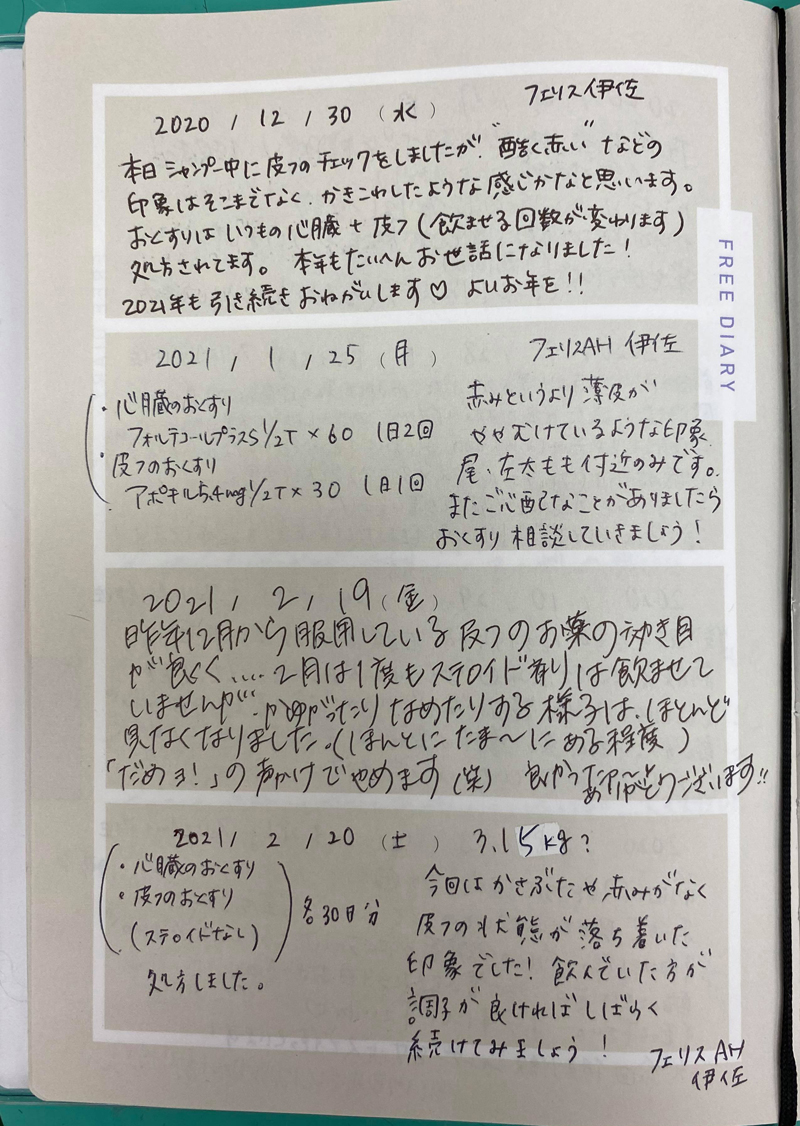 2020 / 12 / 30 (水) フェリス伊佐
本日シャンプー中に皮フのチェックをしましたが、"酷く赤い"などの
印象はそこまでなく、かきこわしたような感じかなと思います。
おくすりはいつもの心臓+皮フ(飲ませる回数が変わります)
処方されてます。本年もたいへんお世話になりました!
2021年も引き続きおねがいします♡ よいお年を!!
FREE DIARY
2021 / 1 / 25 (月) フェリスAH 伊佐
・心臓のおくすり
フォルテコールプラスS 1/2T × 60 1日2回
・皮フのおくすり
アポキル5.4mg 1/2T × 30 1日1回
赤みというより薄皮が
ややむけているような印象。
尾、左太もも付近のみです。
またご心配なことがありましたら
おくすり相談していきましょう!
2021 / 2 / 19 (金)
昨年12月から服用している皮フのお薬の効き目
が良く....2月は1度もステロイド有りは飲ませて
いませんが、かゆがったりなめたりする様子は、ほとんど
見なくなりました。(ほんとにたま〜にある程度)
「だめョ!」の声かけでやめます(笑) 良かったです ありがとうございます!!
2021 / 2 / 20 (土) 3.15kg?
・心臓のおくすり
・皮フのおくすり
(ステロイドなし)
各30日分
処方しました。
今回はかさぶたや、赤みがなく
皮フの状態が落ち着いた
印象でした!飲んでいた方が
調子が良ければしばらく
続けてみましょう!
フェリスAH
伊佐